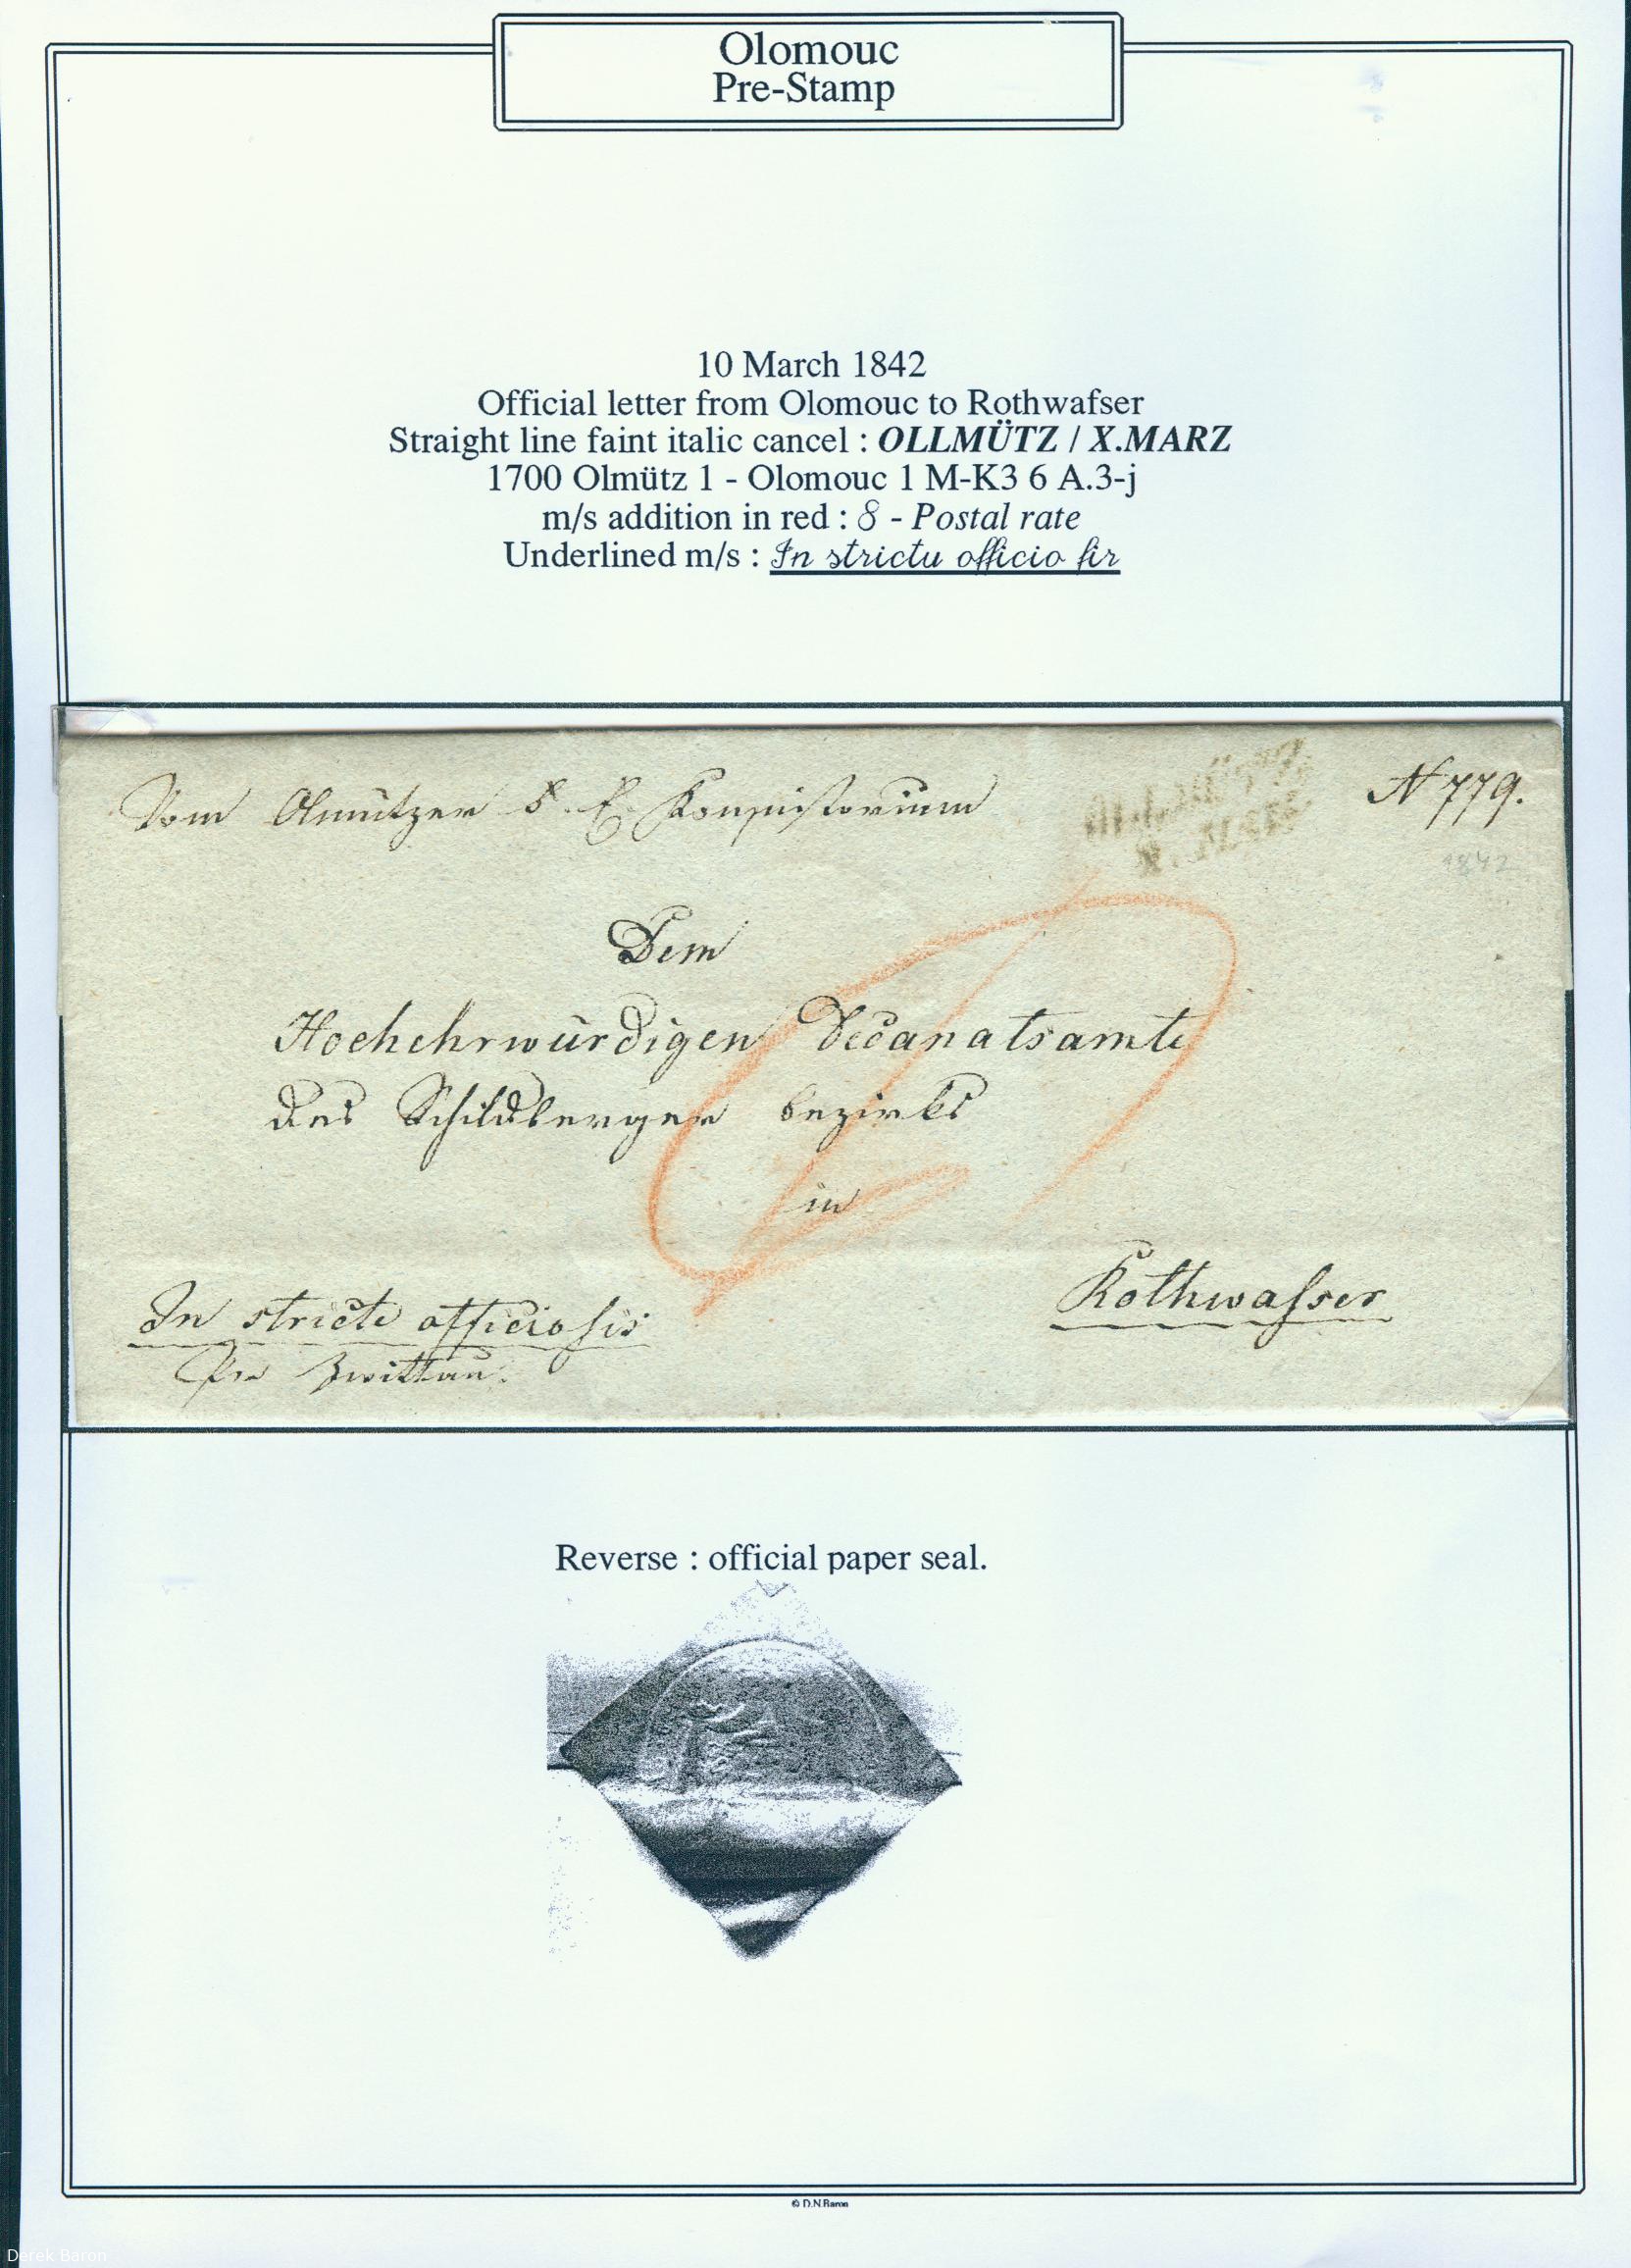 Olomouc
Pre-Stamp
10 March 1842
Official letter from Olomouc to Rothwafser
Straight line faint italic cancel : OLLMÜTZ / X.MARZ
1700 Olmütz 1 - Olomouc 1 M-K3 6 A.3-j
m/s addition in red : 8 - Postal rate
Underlined m/s : In strictu officio fir
Vom Olmützer f. e. Konsistorium
N 779.
1842
Dem
Hochehrwürdigen Decanatsamte
des Schildberger Bezirks
in
Rothwaſser
In stricte officiosis
Per Zwittau.
Reverse : official paper seal.
© D.N.Baron
Derek Baron